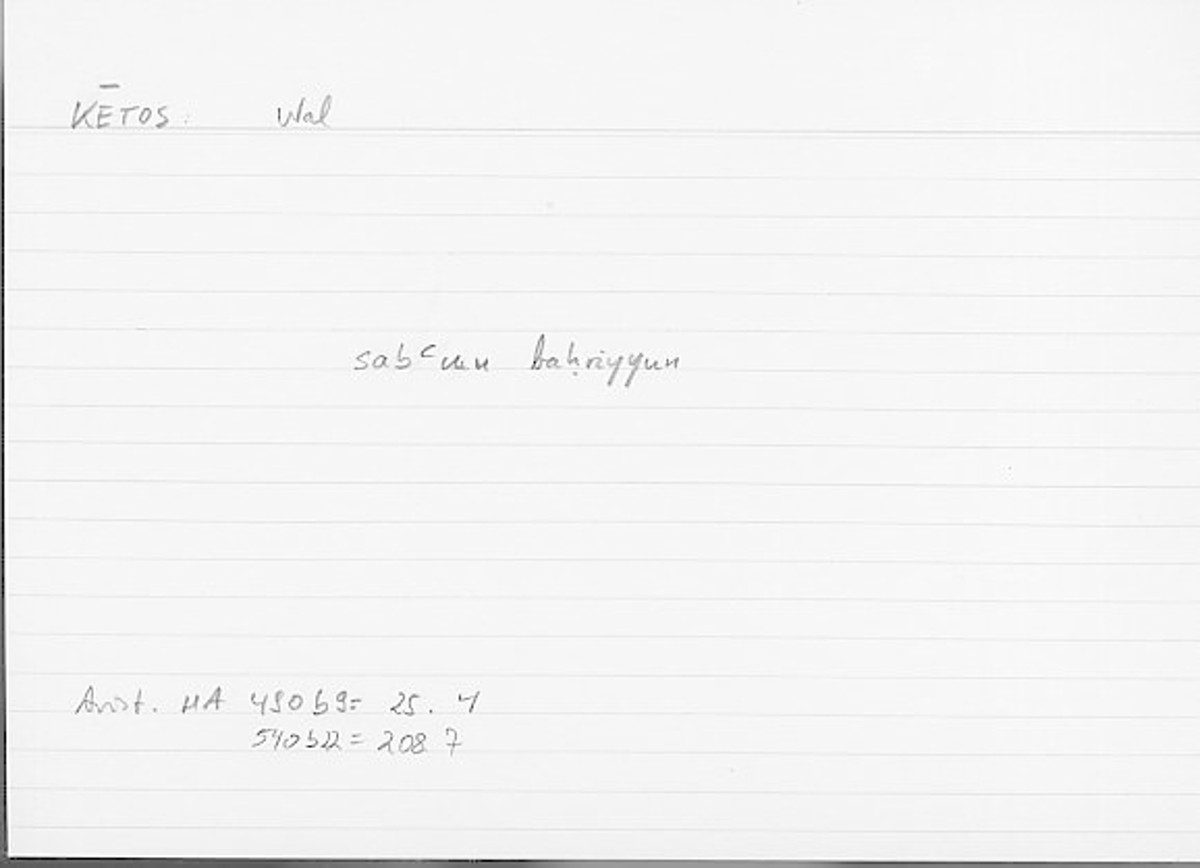 KĒTOS: Wal
sabᶜun baḥriyyun
Arist. HA 490b9 = 25.4
540b22 = 208 7